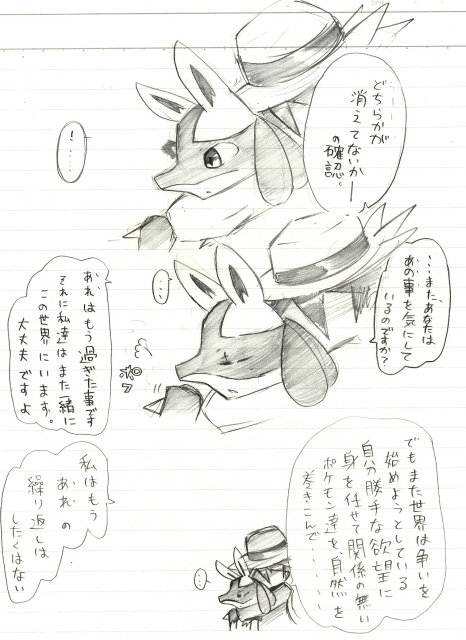 どちらかが
消えてないかー
の確認。
!・・・・
・・・また、あなたは
あの事を気にして
いるのですか？
・・・
あれはもう過ぎた事です
それに私達はまた一緒に
この世界にいます。
大丈夫ですよ
でもまた世界は争いを
始めようとしている
自分勝手な欲望に
身を任せて関係の無い
ポケモン達を、自然を
巻きこんで・・・・・・
・・・
私はもう
あれの
繰り返しは
したくはない